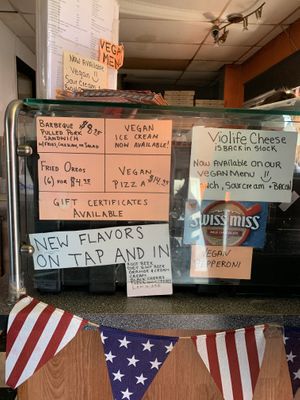 VEGAN
MENU
Now Available
Vegan
Sour Cream
BARBEQUE
PULLED PORK
SANDWICH
W/FRIES, COLESLAW, OR SALAD
VEGAN
ICE CREAM
NOW AVAILABLE!
FRIED OREOS
(6) FOR
VEGAN
PIZZA $14.95
GIFT CERTIFICATES
AVAILABLE
Violife Cheese
IS BACK IN STOCK
NOW AVAILABLE ON OUR
VEGAN MENU
Ranch, SOUR CREAM + BACON
SWISS MISS
VEGAN
PEPPERONI
NEW FLAVORS
ON TAP AND IN
ROOT BEER
DIET ROOT BEER
ORANGE & CREAM
CREAM
BLACK CHERRY